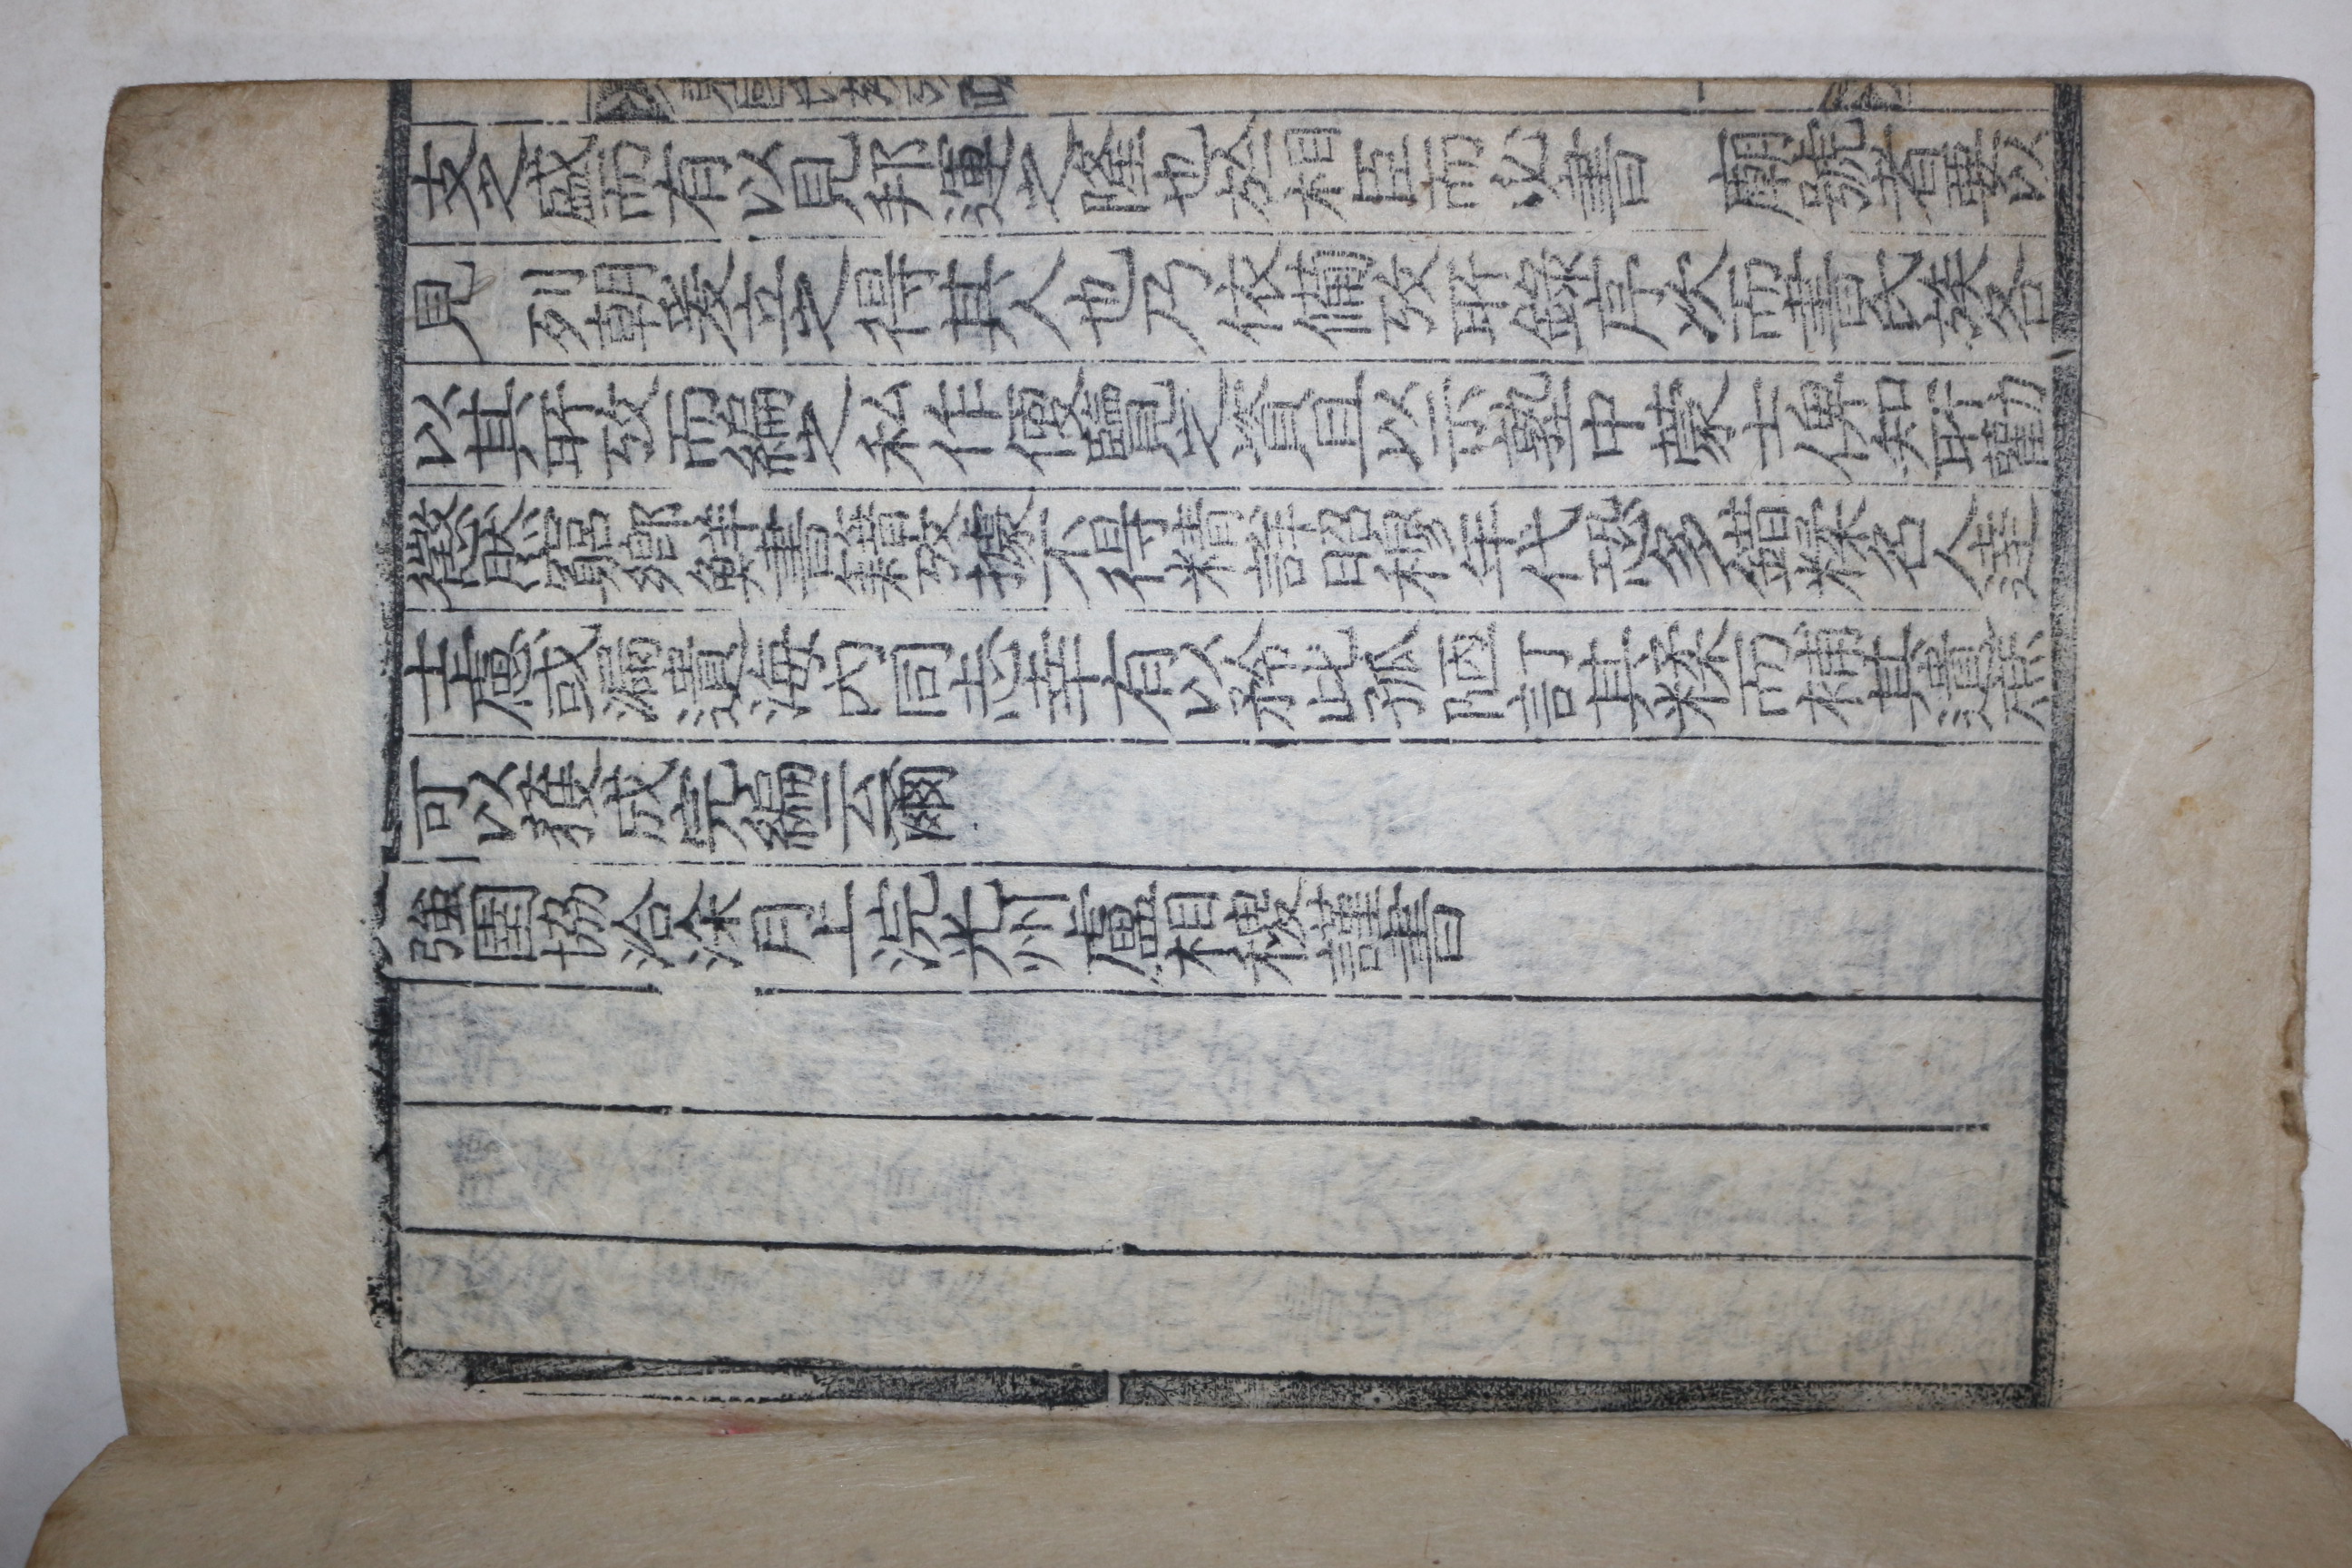 支之盛而有以見邦運之隆也於相臣而必書　廟號者要以
見　列朝爰立之得其人也乃依備攷所錄序次而書氏族各
以其所攷而編之私作便覽之資且以示塾中蒙士俾知所勸
懲然窮鄉鮮書籍攷據不得精詳昭穆年代恐多錯糅名人達
士慮或漏遺海內同志幸有以矜此孤陋訂其糅而補其遺庶
可以獲成完編云爾
強圉協洽涂月上浣光州盧相稷謹書